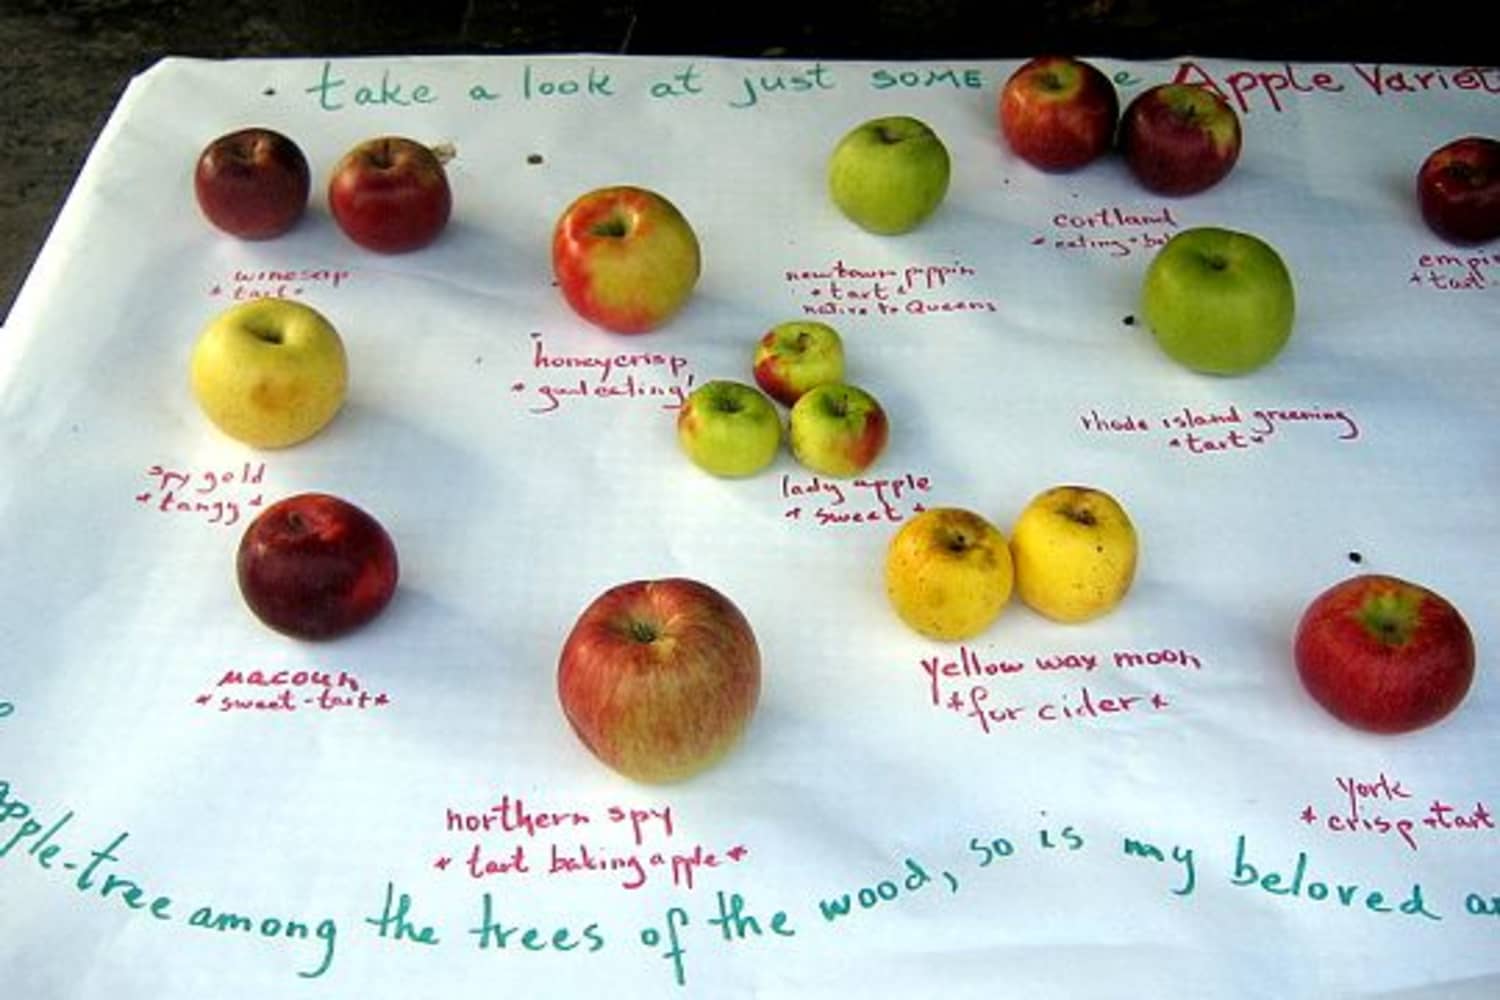 take a look at just SOME e Apple Variet
winesap
*tart*
newtown pippin
*tart*
native to Queens
cortland
*eating + ba
empi
*tart-
honeycrisp
* good eating!
rhode island greening
*tart*
spy gold
*tangy*
lady apple
* sweet *
macoun
*sweet-tart*
yellow wax moon
*for cider*
york
*crisp+tart
northern spy
* tart baking apple*
apple-tree among the trees of the wood, so is my beloved a